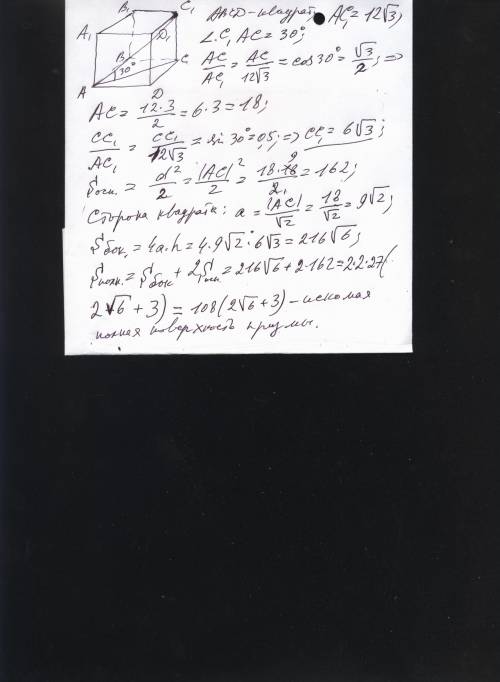 B₁ C₁
A₁ D₁
B C
30°
A D
ABCD - квадрат; AC₁ = 12√3;
∠C₁AC = 30°;
AC/AC₁ = AC/12√3 = cos 30° = √3/2; =>
AC = 12·3/2 = 6·3 = 18;
CC₁/AC₁ = CC₁/12√3 = sin 30° = 0,5; => CC₁ = 6√3;
Sосн. = d²/2 = |AC|²/2 = 18·18/2 = 162;
9
Сторона квадрата: a = |AC|/√2 = 18/√2 = 9√2;
Sбок. = 4a·h = 4·9√2·6√3 = 216√6;
Sполн. = Sбок + 2Sосн. = 216√6 + 2·162 = 2·2·27(
2√6 + 3) = 108(2√6 + 3) - искомая
полная поверхность призмы.